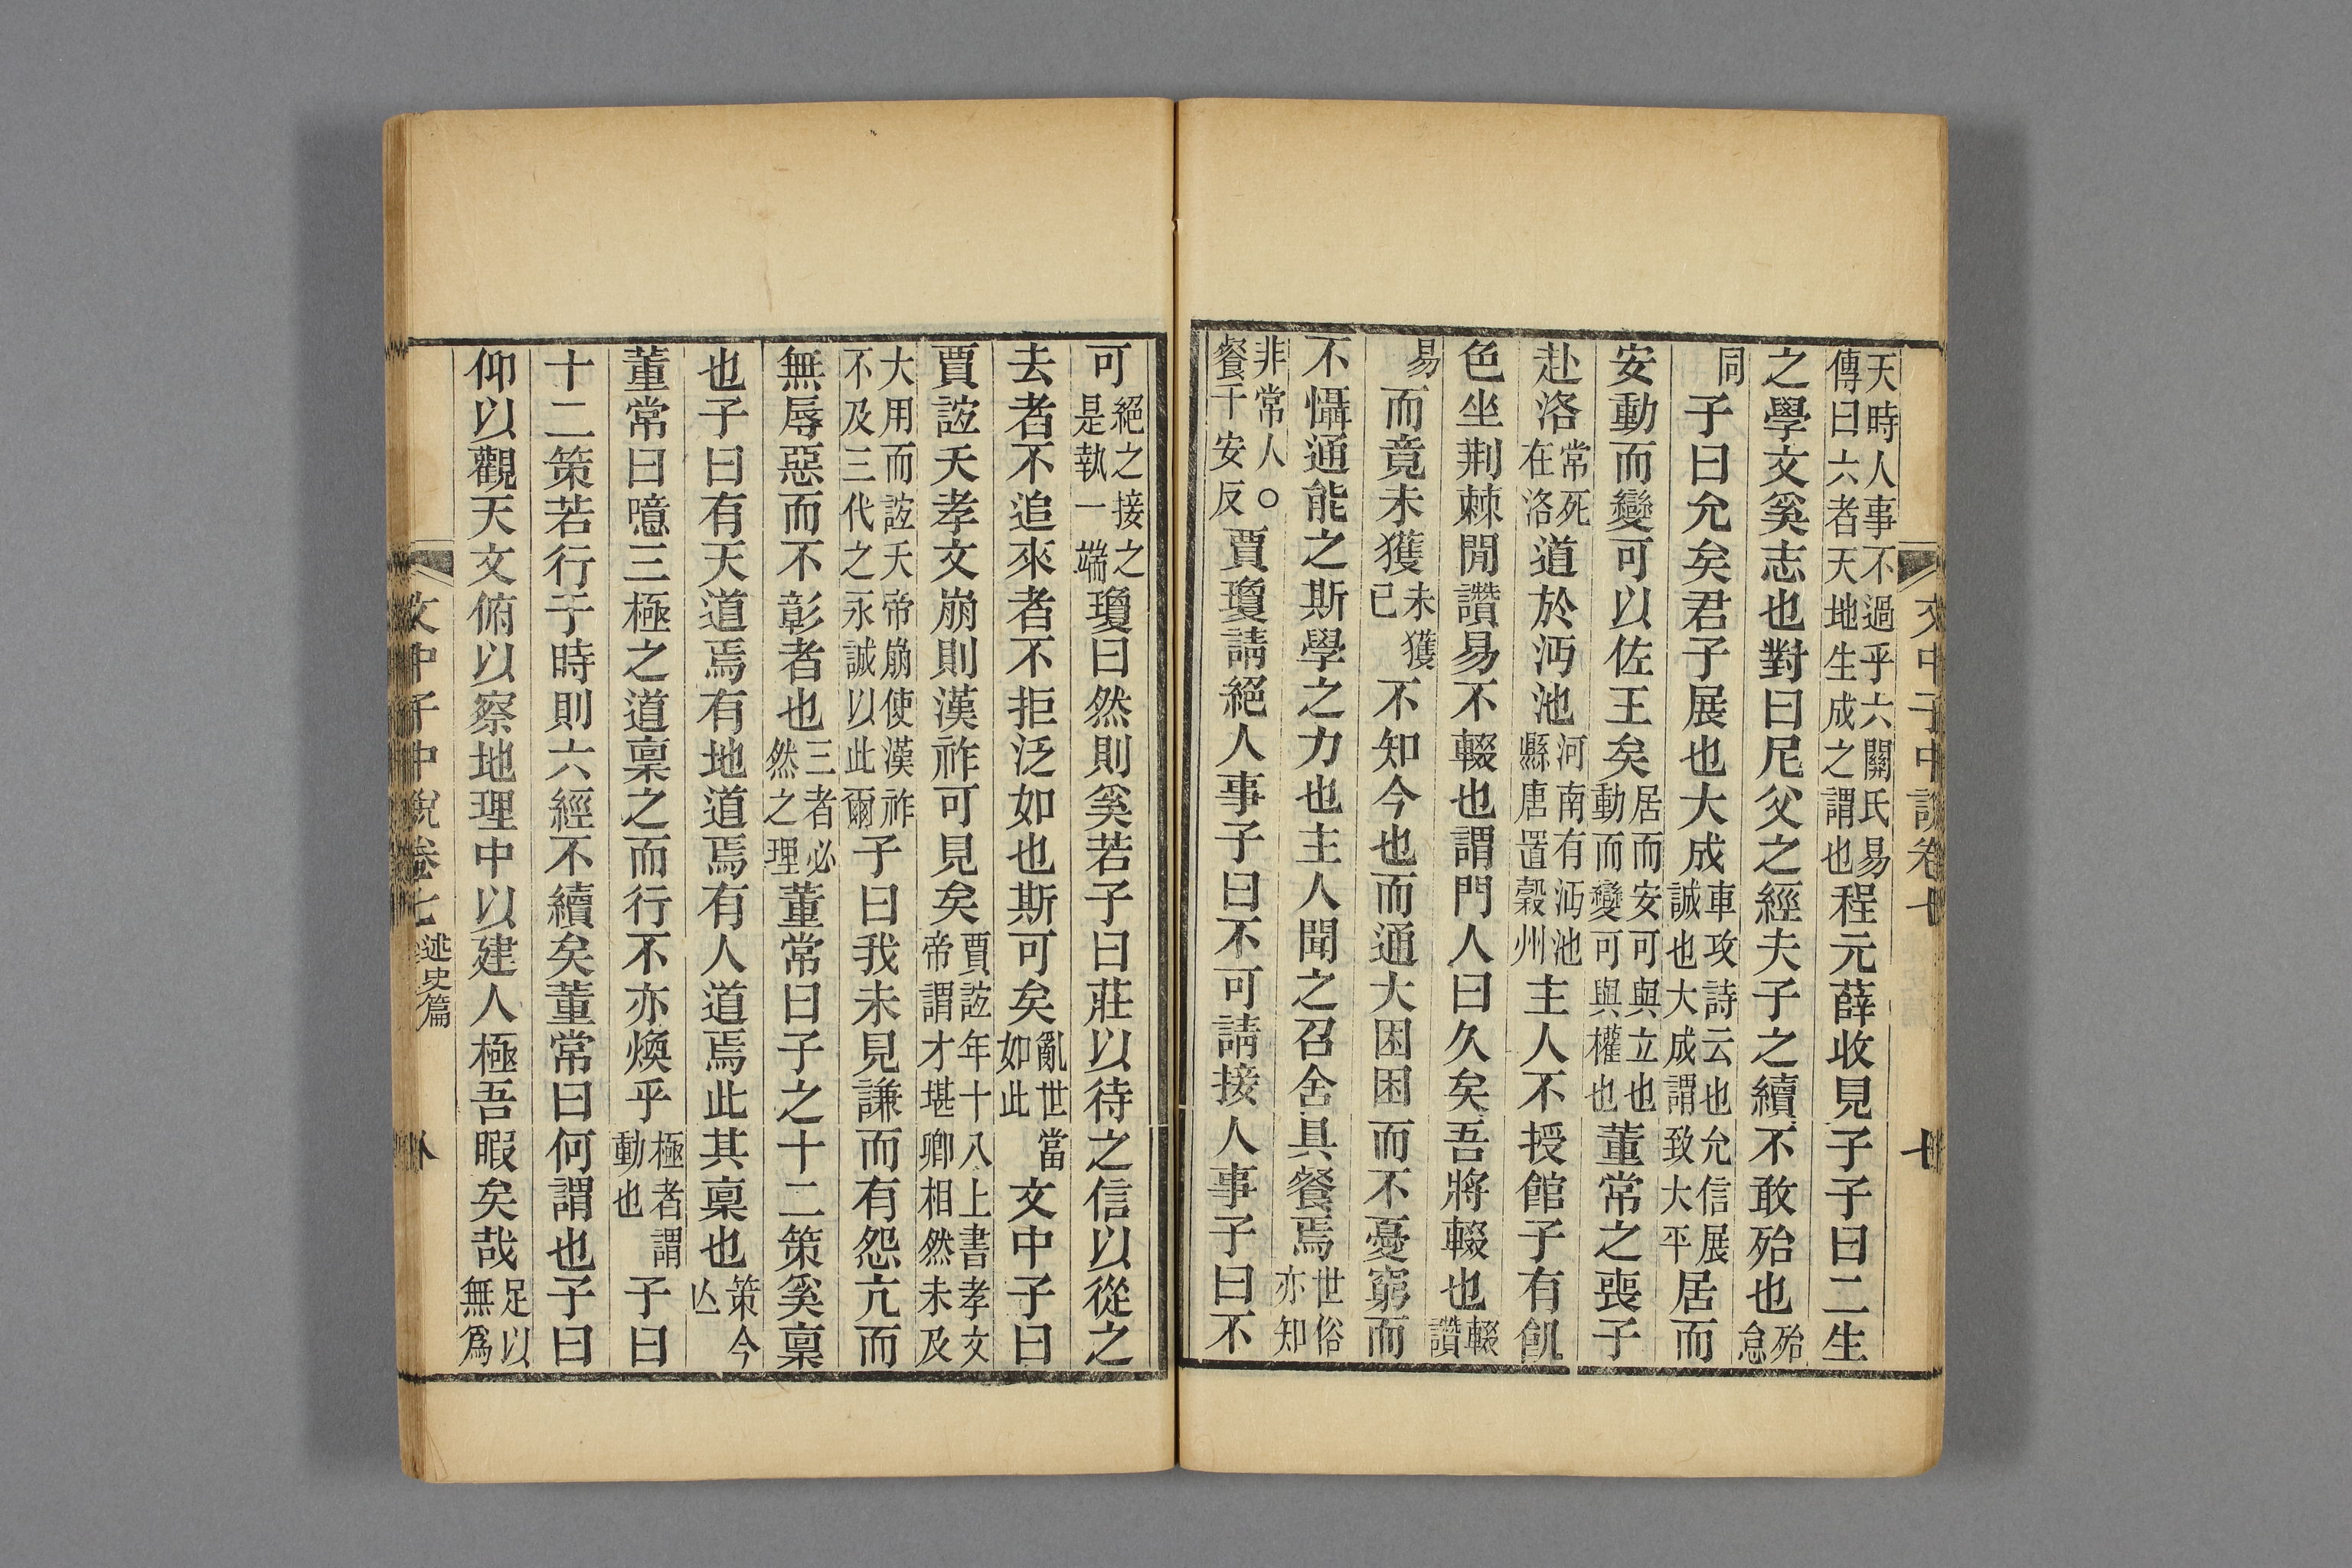 文中子中說卷七 七
天時人事不過乎六關氏易傳曰六者天地生成之謂也程元薛收見子子曰二生
之學文奚志也對曰尼父之經夫子之續不敢殆也殆怠
同子曰允矣君子展也大成車攻詩云也允信展誠也大成謂致大平居而
安動而變可以佐王矣居而安可與立也動而變可與權也董常之喪子
赴洛常死在洛道於沔池河南有沔池縣唐置穀州主人不授館子有飢
色坐荆棘閒讚易不輟也謂門人曰久矣吾將輟也輟讚
易而竟未獲未獲已不知今也而通大困困而不憂窮而
不懾通能之斯學之力也主人聞之召舍具餐焉世俗亦知
非常人○餐千安反賈瓊請絕人事子曰不可請接人事子曰不
可絕之接之是執一端瓊曰然則奚若子曰莊以待之信以從之
去者不追來者不拒泛如也斯可矣亂世當如此文中子曰
賈誼夭孝文崩則漢祚可見矣賈誼年十八上書孝文帝謂才堪卿相然未及
大用而誼夭帝崩使漢祚不及三代之永誠以此爾子曰我未見謙而有怨亢而
無辱惡而不彰者也三者必然之理董常曰子之十二策奚稟
也子曰有天道焉有地道焉有人道焉此其稟也策今亾
董常曰噫三極之道稟之而行不亦煥乎極者謂動也子曰
十二策若行于時則六經不續矣董常曰何謂也子曰
仰以觀天文俯以察地理中以建人極吾暇矣哉足以無爲
文中子中說卷七 述史篇 八